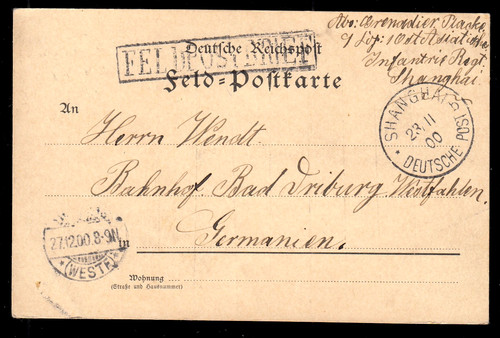 Abs: Grenadier Ranke
9/ Ost Asiatische
Infantrie Regt.
Shanghai.
Deutsche Reichspost
FELDPOSTBRIEF
Feld-Postkarte
SHANGHAI
DEUTSCHE POST
23/11
00
An
Herrn Wendt.
Bahnhof Bad Driburg Westfahlen.
in Germanien.
27.12.00 8-9N
(WESTF.)
Wohnung
(Straße und Hausnummer)